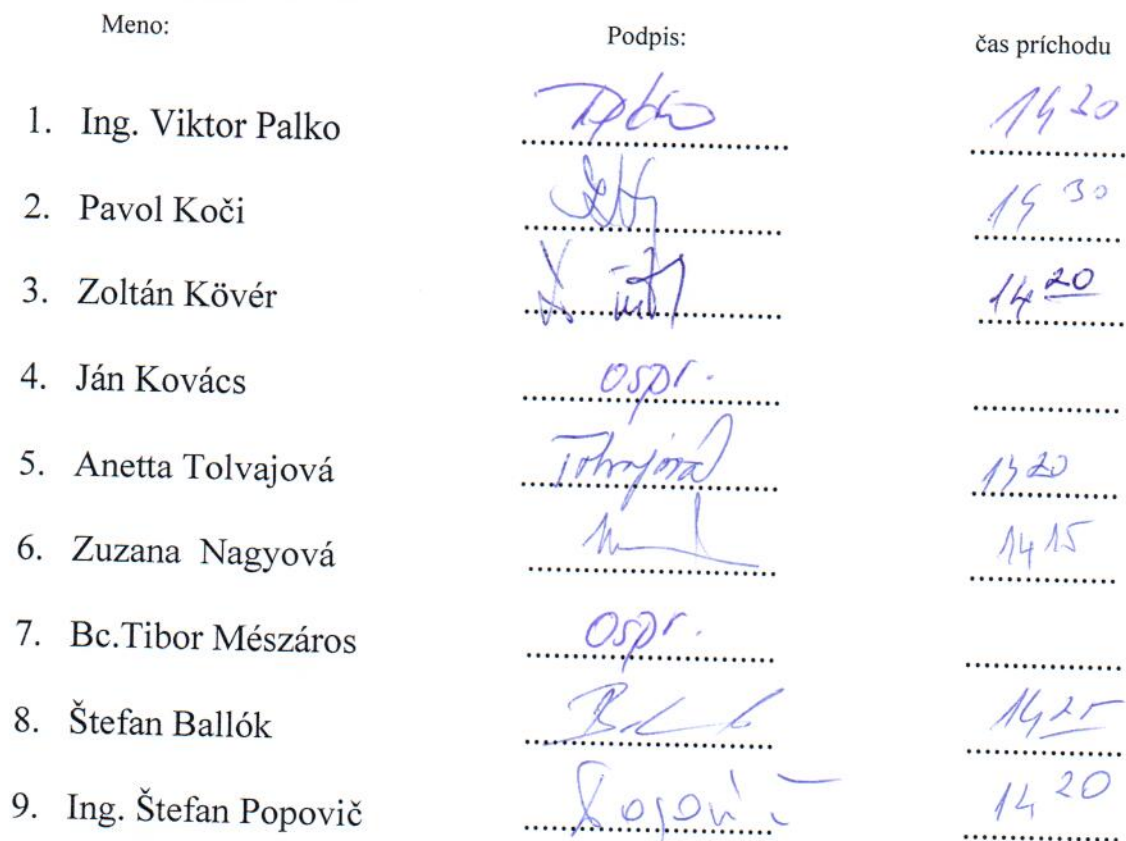 Meno: Podpis: čas príchodu
1. Ing. Viktor Palko 14 30
2. Pavol Koči 14 30
3. Zoltán Kövér 14 20
4. Ján Kovács ospr.
5. Anetta Tolvajová Tolvajová 20
6. Zuzana Nagyová 14 15
7. Bc.Tibor Mészáros ospr.
8. Štefan Ballók 14 25
9. Ing. Štefan Popovič 14 20